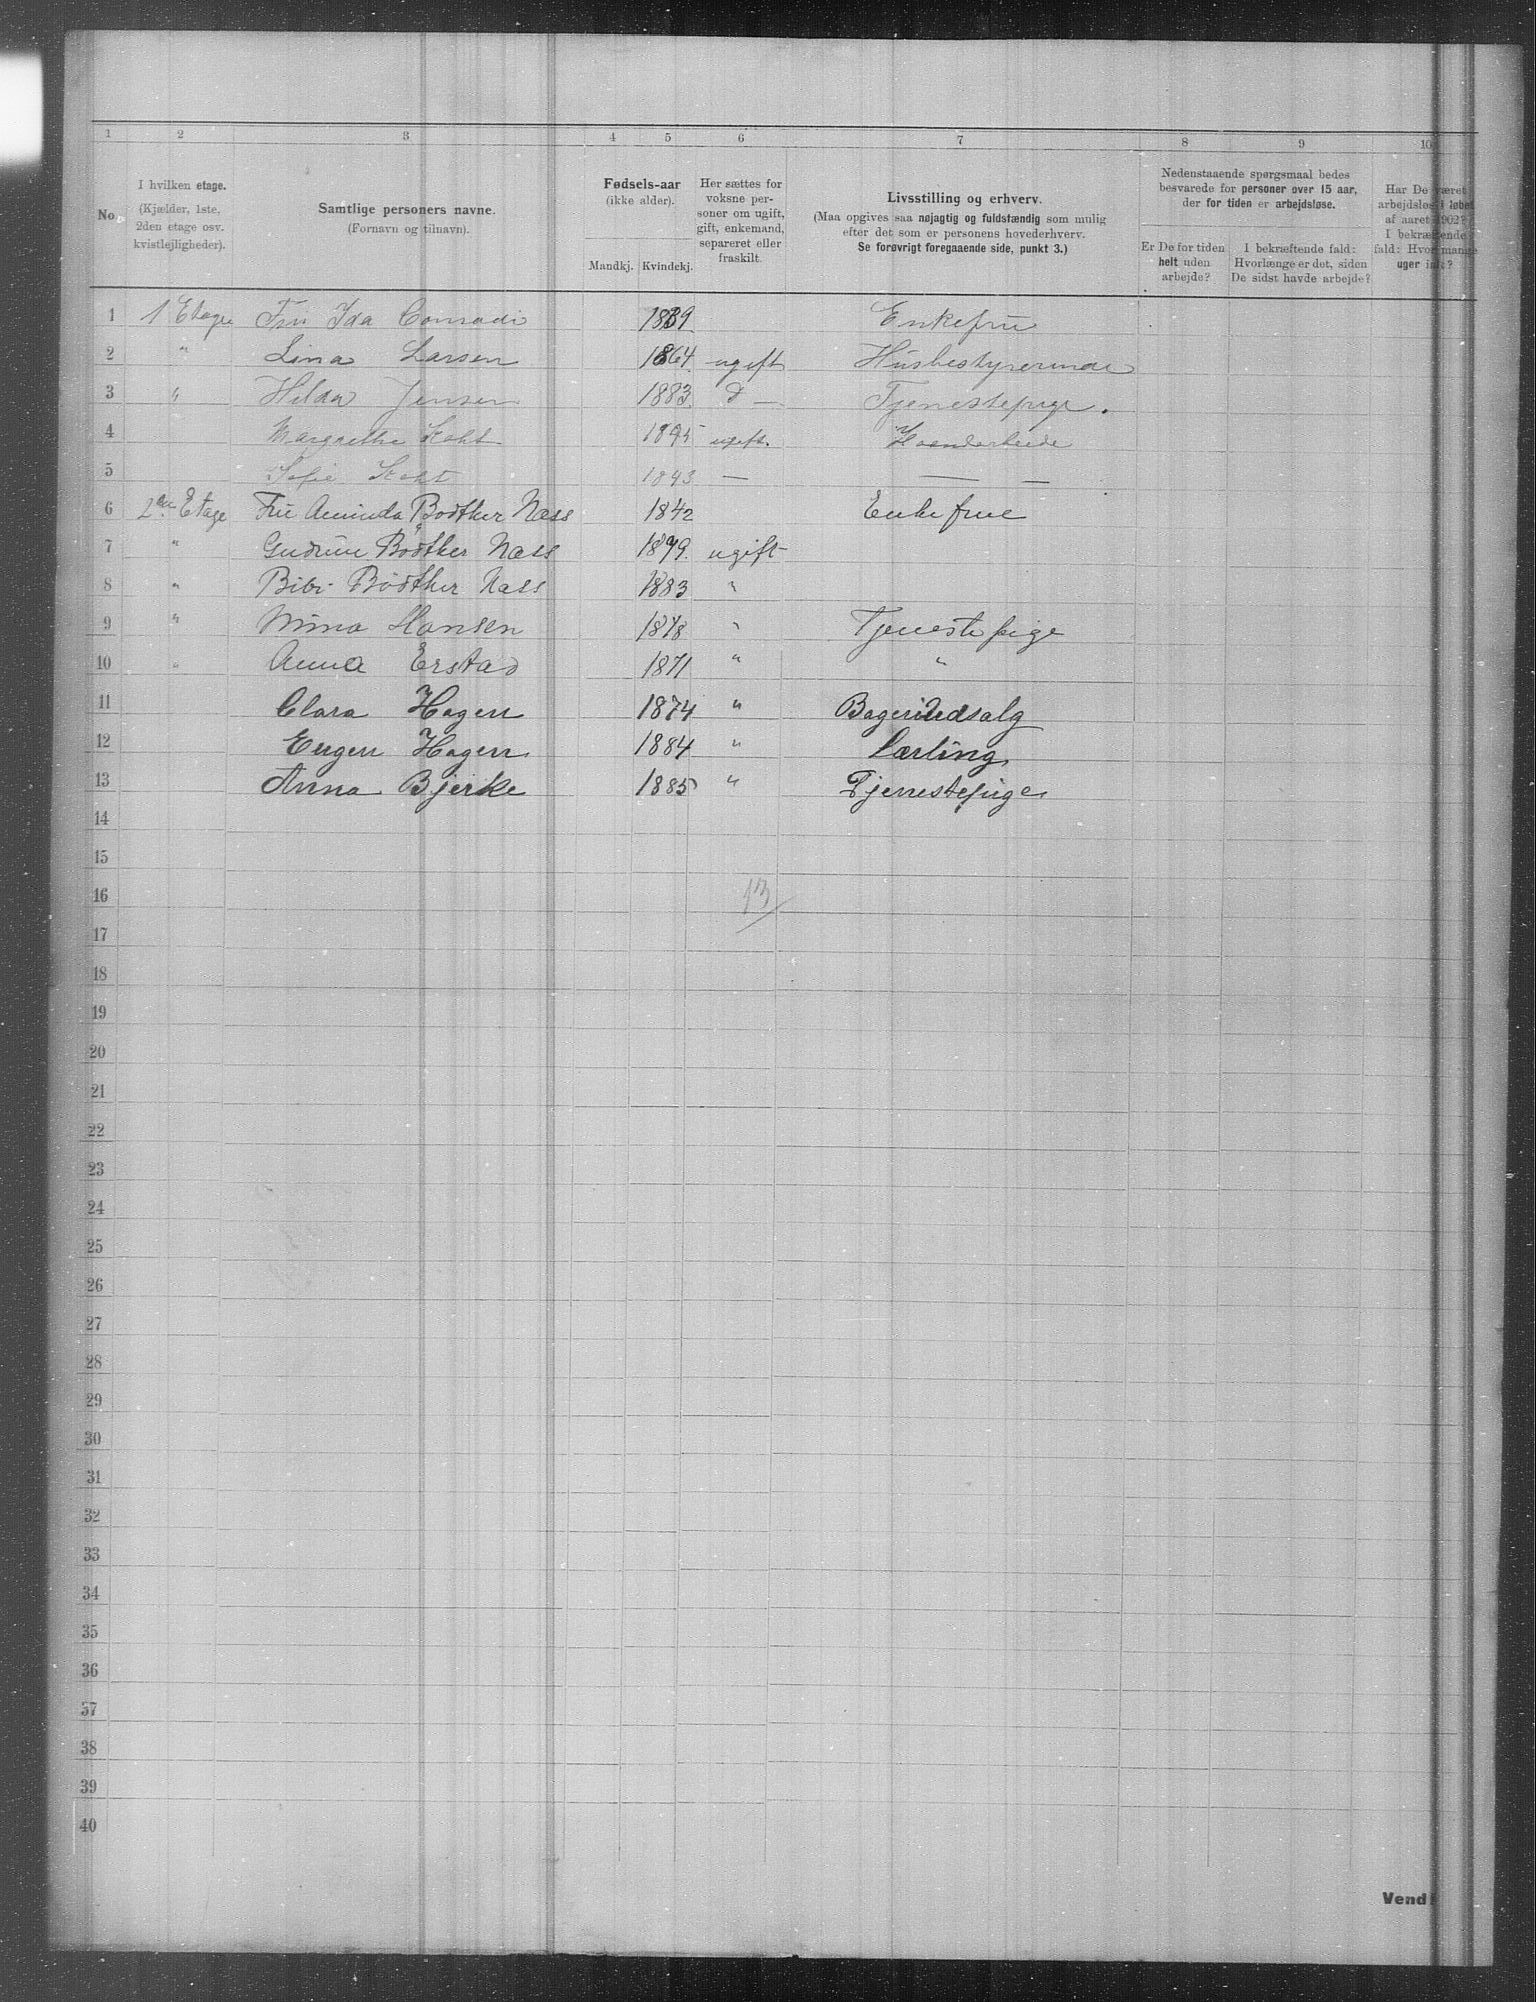 1 2 3 4 5 6 7 8 9 10
No.
I hvilken etage.
(Kjælder, 1ste,
2den etage osv.
kvistlejligheder).
Samtlige personers navne.
(Fornavn og tilnavn).
Fødsels-aar
(ikke alder).
Mandkj. Kvindekj.
Her sættes for
voksne per-
soner om ugift,
gift, enkemand,
separeret eller
fraskilt.
Livsstilling og erhverv.
(Maa opgives saa nøjagtig og fuldstændig som mulig
efter det som er personens hovederhverv.
Se forøvrigt foregaaende side, punkt 3.)
Nedenstaaende spørgsmaal bedes
besvarede for personer over 15 aar,
der for tiden er arbejdsløse.
Er De for tiden
helt uden
arbejde?
I bekræftende fald:
Hvorlænge er det, siden
De sidst havde arbejde?
Har De været
arbejdsløs i løbet
af aaret 1902?
I bekræftende
fald: Hvor mange
uger ialt?
1 1 Etage Fru Ida Conradi 1839 Enkefru
2 " Lina Larsen 1864 ugift Husbestyrerinde
3 " Hilda Jensen 1883 d — Tjenestepige.
4 Margrethe Koht 1845 ugift. Haandarbeide
5 Sofie Koht 1843 — — —
6 2den Etage Fru Bödtker Næss 1842 Enkefrue
7 " Gudrun Bödtker Næss 1879. ugift
8 " Bibi Bödtker Næss 1883 "
9 " Nina Hansen 1878 " Tjenestepige
10 " Anna Erstad 1871 " "
11 Clara Hagen 1874 " Bageriudsalg
12 Eugen Hagen 1884 " Lærling
13 Anna Bjerke 1885 " Tjenestepige
14
15
16 13
17
18
19
20
21
22
23
24
25
26
27
28
29
30
31
32
33
34
35
36
37
38
39
40
Vend!